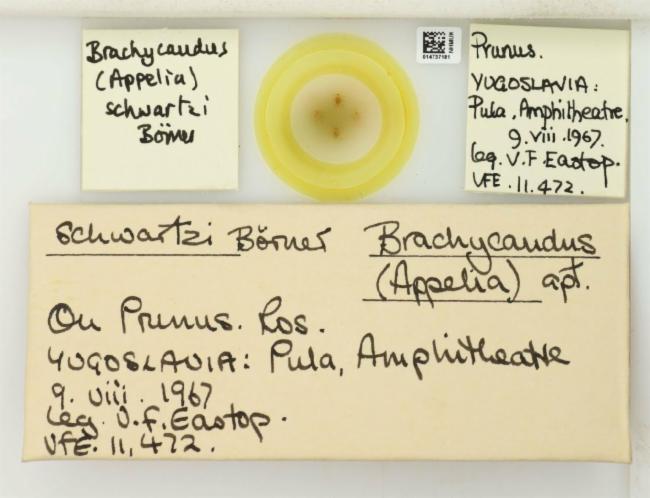 Brachycaudus
(Appelia)
schwartzi
Börner
014737181
NHMUK
Prunus.
YUGOSLAVIA:
Pula, Amphitheatre,
9. viii. 1967.
leg. V.F. Eastop.
VFE. 11,472.
schwartzi Börner Brachycaudus
(Appelia) apt.
On Prunus. Ros.
YUGOSLAVIA: Pula, Amphitheatre
9. viii. 1967
leg. V.F. Eastop.
VFE. 11,472.